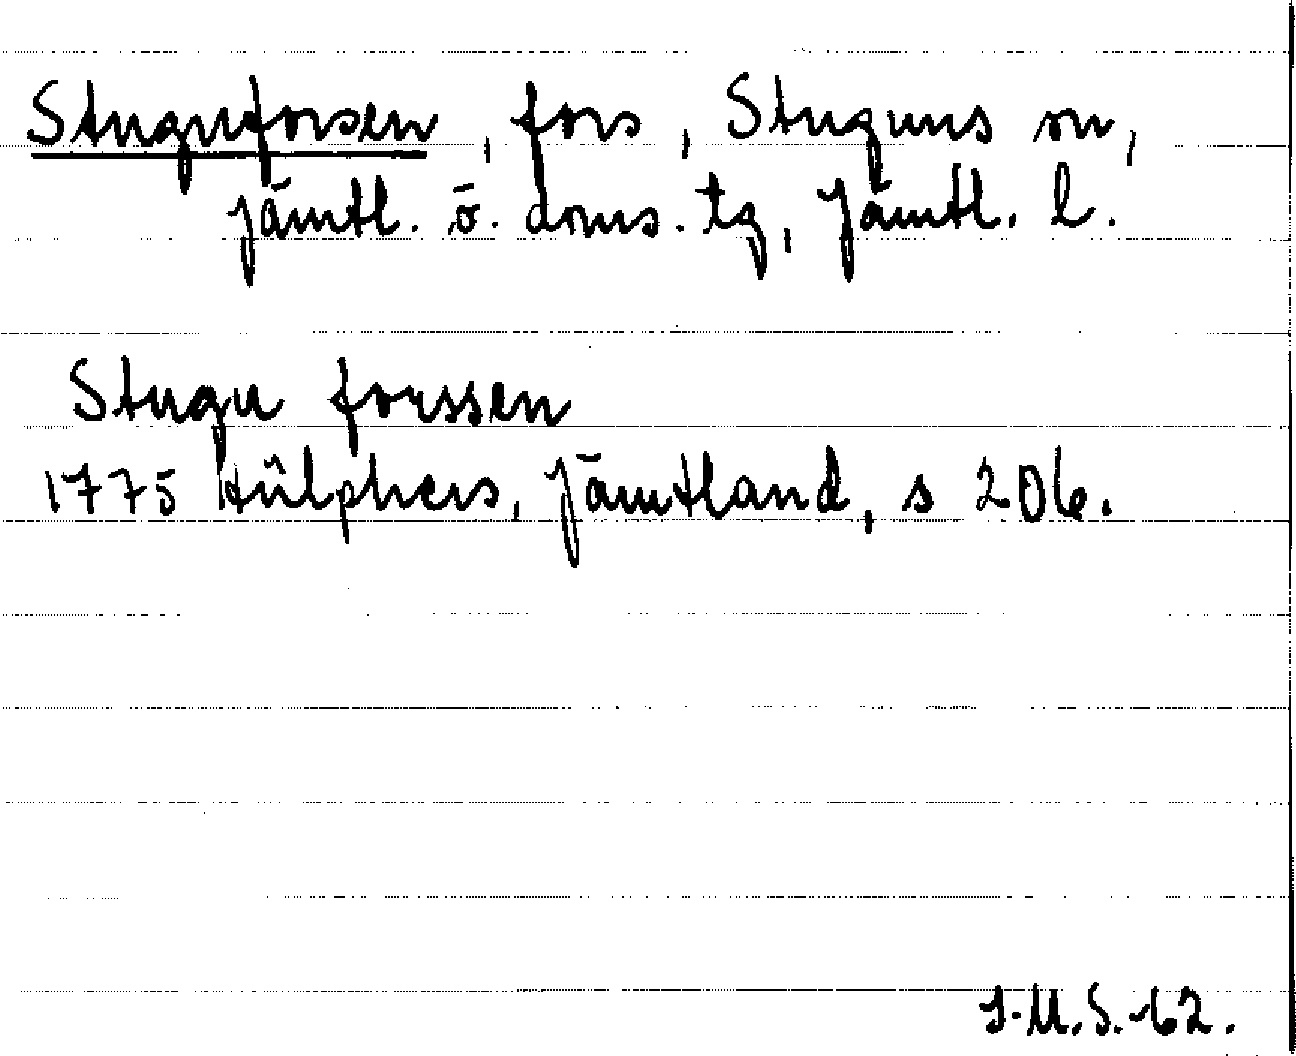 Stuguforsen, fors, Stuguns sn,
Jämtl. ö. doms. tg, Jämtl. l.
Stugu forssen
1775 Hülphers, Jämtland, s 206.
I.M.S.-62.